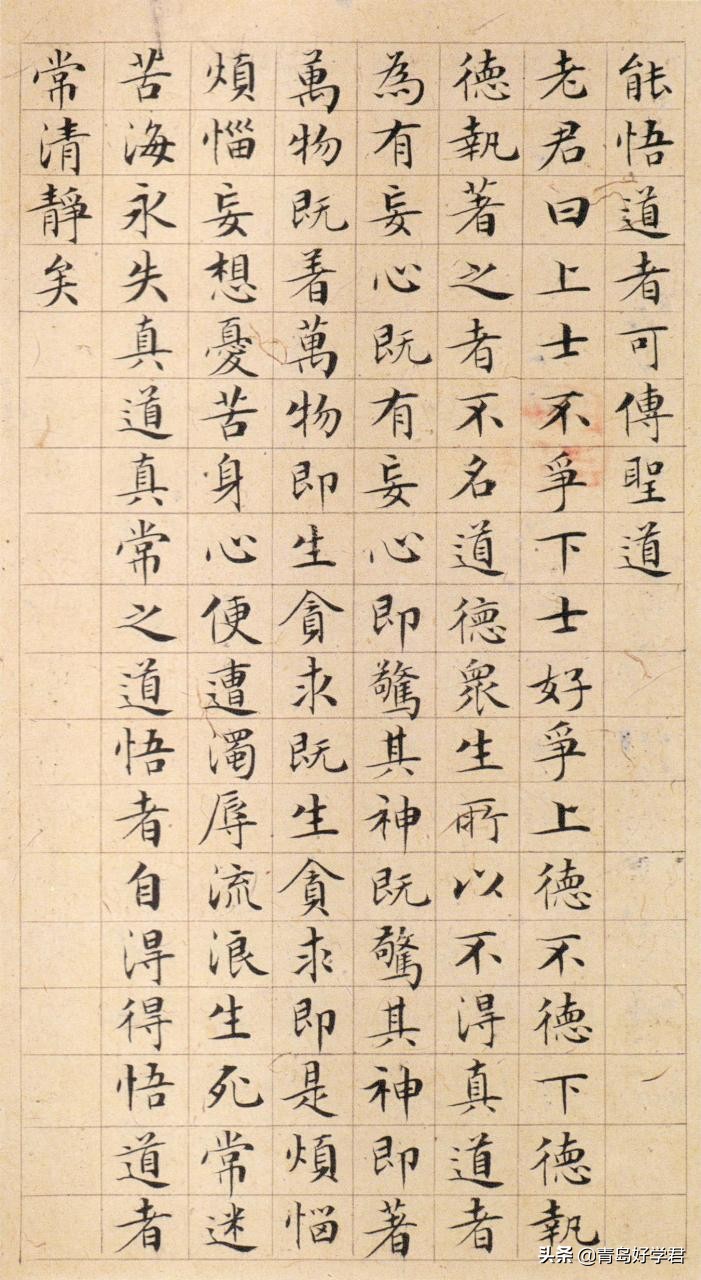 能悟道者可傳聖道
老君曰上士不爭下士好爭上德不德下德執
德執著之者不名道德衆生所以不得真道者
為有妄心既有妄心即驚其神既驚其神即著
萬物既着萬物即生貪求既生貪求即是煩惱
煩惱妄想憂苦身心便遭濁辱流浪生死常迷
苦海永失真道真常之道悟者自得得悟道者
常清靜矣
头条 @青岛好学君